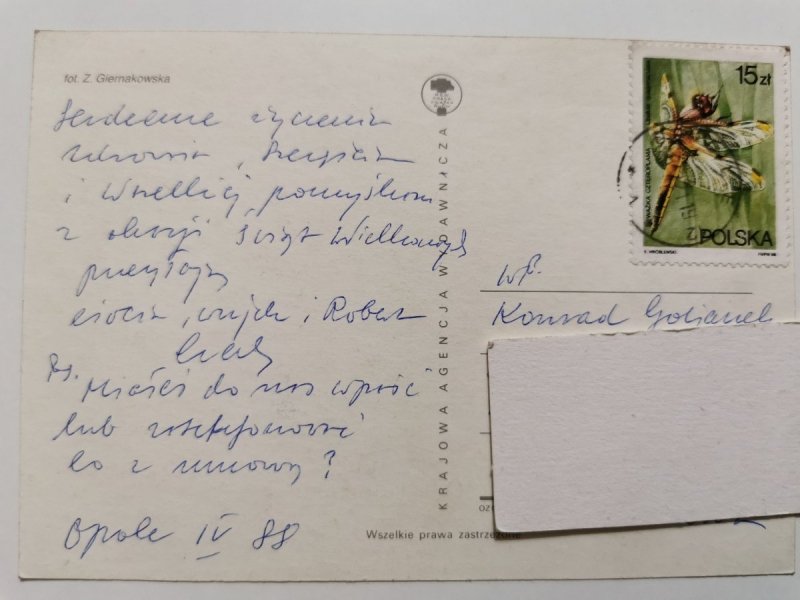 fot. Z. Giernakowska
Serdeczne życzenia
zdrowia, szczęścia
i wszelkiej pomyślności
z okazji Świąt Wielkanocnych
przesyłają
ciocia, wujek i Robert
Ps. Miałeś do nas wpaść
lub zatelefonować
co z umową?
Opole IV 88
KRAJOWA AGENCJA WYDAWNICZA
Wszelkie prawa zastrzeżone
15 zł
WAŻKA CZTEROPLAMA
POLSKA
WP.
Konrad